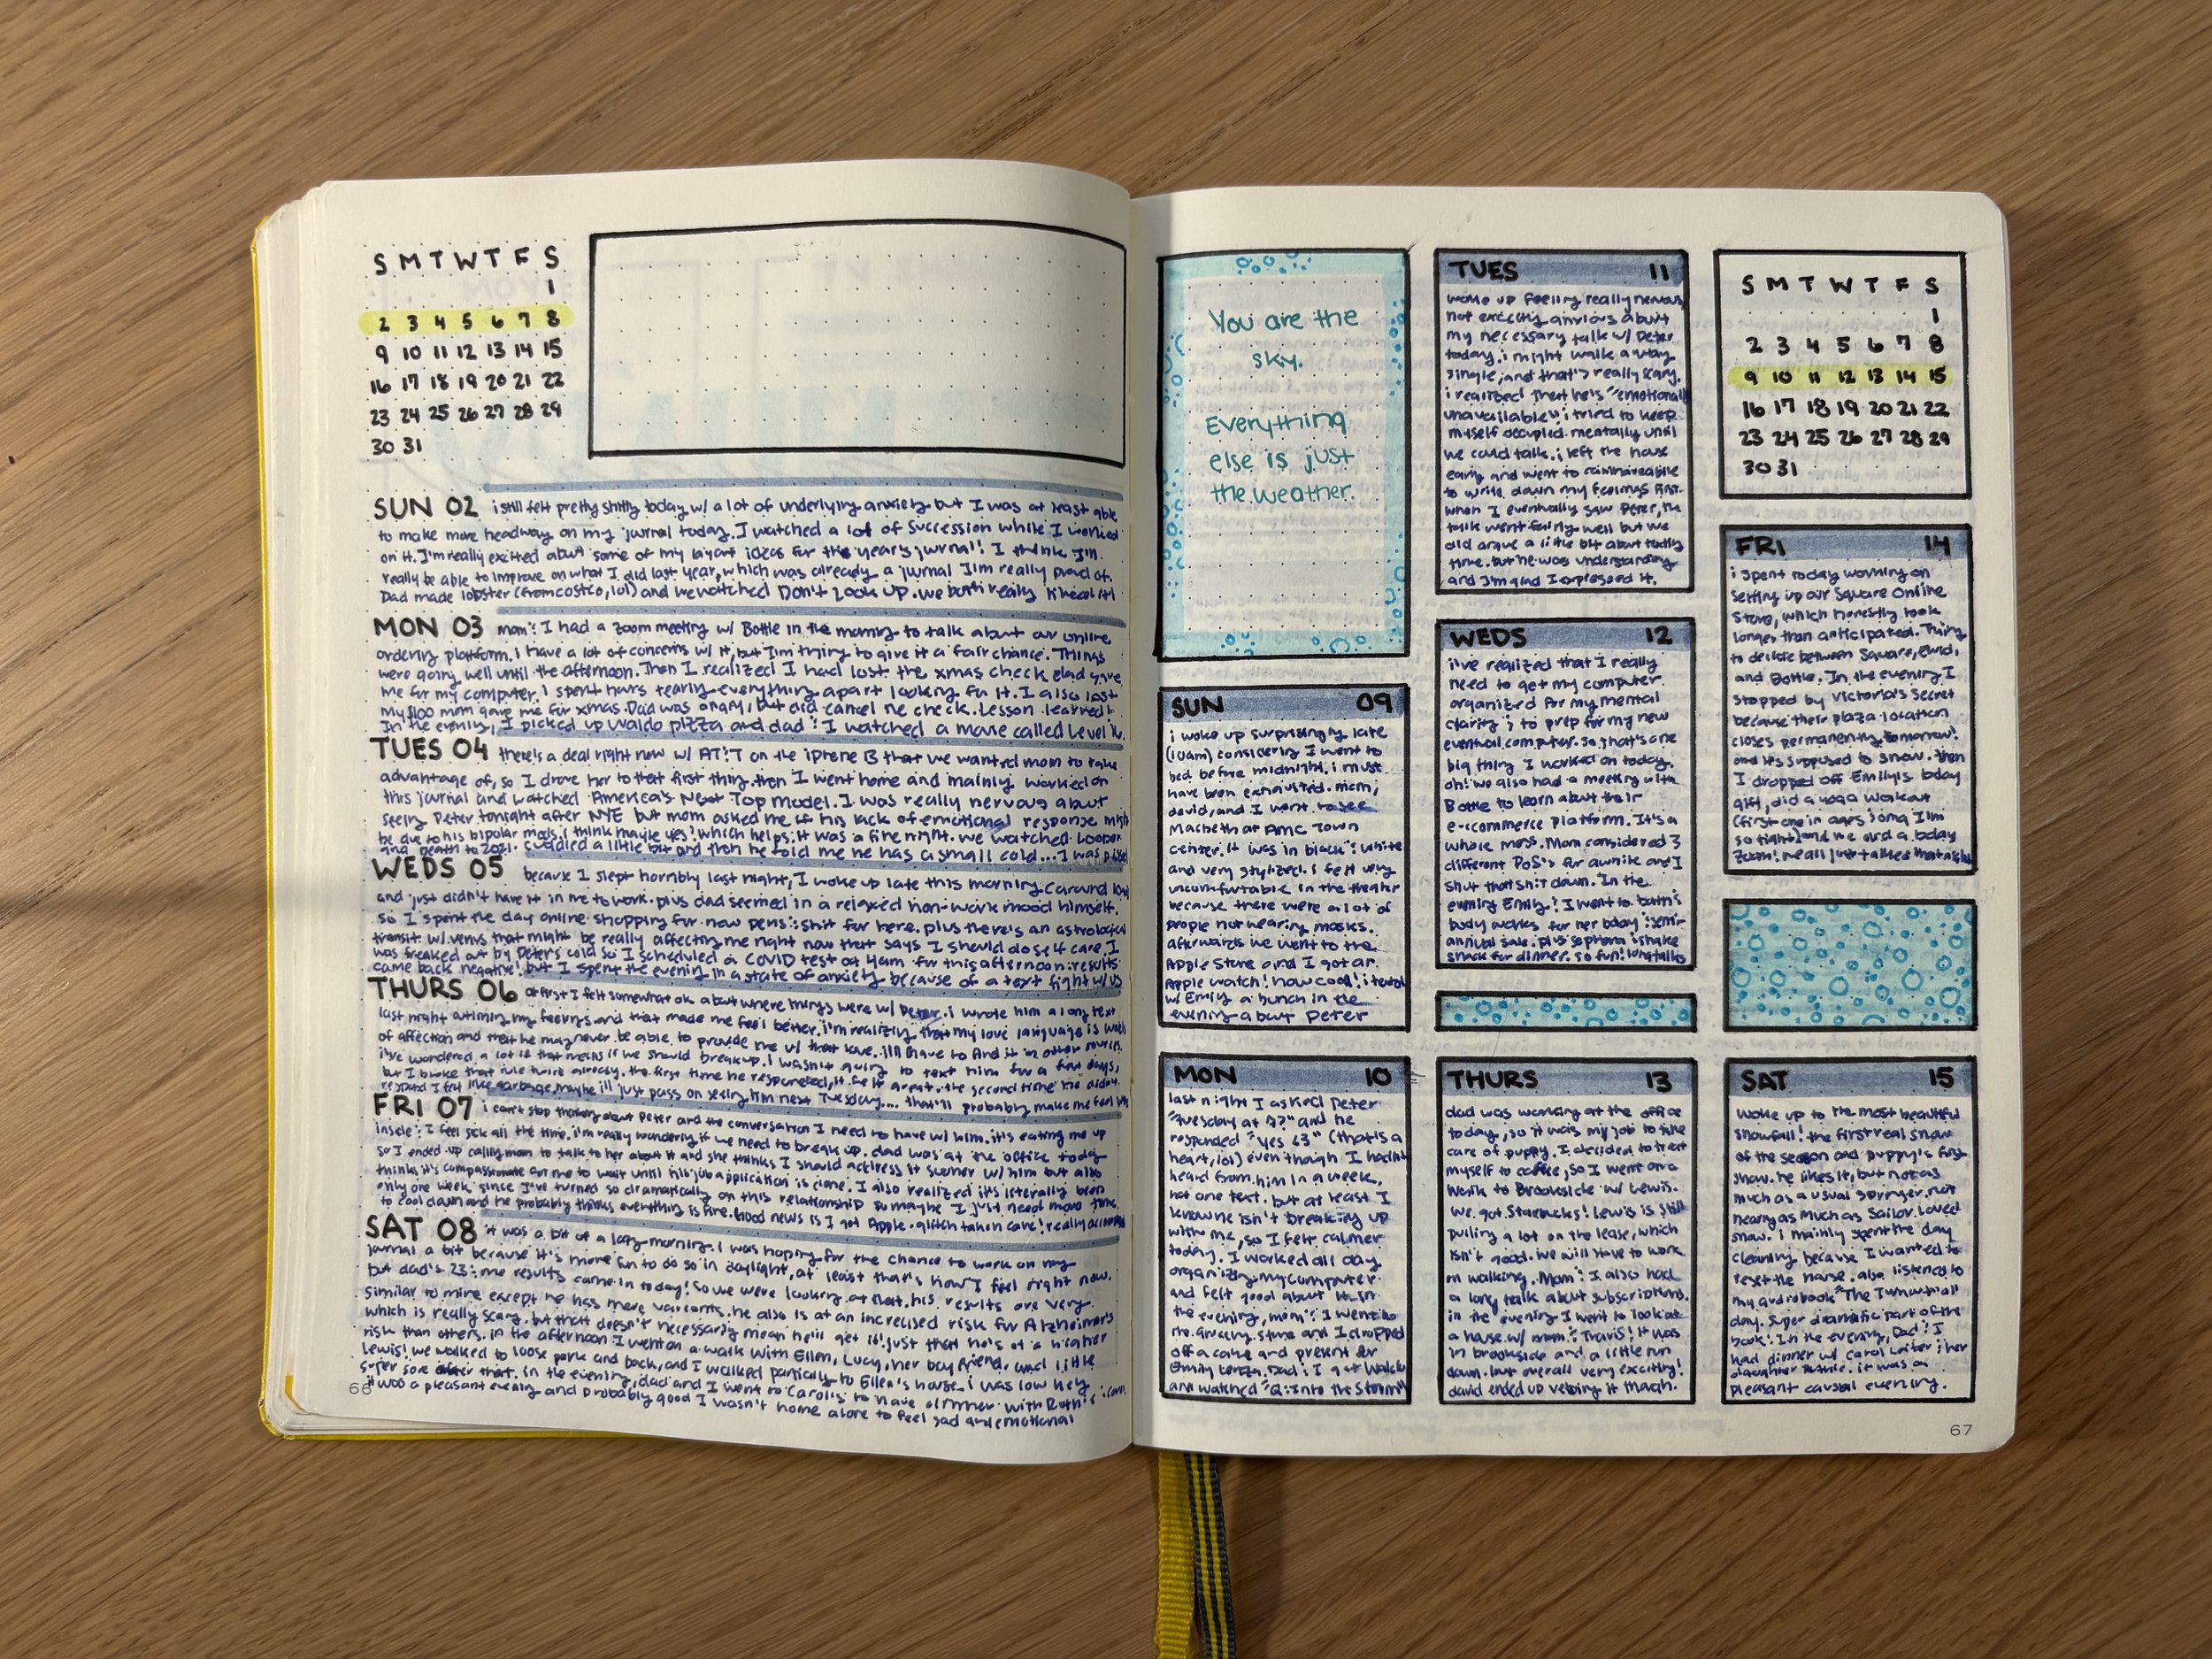 S M T W T F S
1
2 3 4 5 6 7 8
9 10 11 12 13 14 15
16 17 18 19 20 21 22
23 24 25 26 27 28 29
30 31
SUN 02 i still felt pretty shitty today w/ a lot of underlying anxiety but I was at least able
to make more headway on my journal today. I watched a lot of succession while I worked
on it. I'm really excited about some of my layout ideas for this year's jurnal! I think I'm
really be able to improve on what I did last year, which was already a jurnal I'm really proud of.
Dad made lobster (from costco, lol) and we watched Don't Look Up. we both really liked it!
MON 03 mom : I had a zoom meeting w/ Bottle in the morning to talk about our online
ordering platform. i have a lot of concerns w/ it, but I'm trying to give it a fair chance. Things
were going well until the afternoon. Then I realized I had lost the xmas check dad gave
me for my computer. I spent hours tearing everything apart looking for it. I also lost
my $100 mom gave me for xmas. Dad was angry, but did cancel the check. Lesson learned!
In the evening, I picked up Waldo pizza and dad : I watched a movie called Level 16.
TUES 04 there's a deal right now w/ AT:T on the iphone 13 that we wanted mom to take
advantage of, so I drove her to that first thing. then I went home and mainly worked on
this journal and watched America's Next Top Model. I was really nervous about
seeing Peter tonight after NYE but mom asked me if his lack of emotional response might
be due to his bipolar meds. i think maybe yes! which helps. it was a fine night. we watched Looper
and Death to 2021. cuddled a little bit and then he told me he has a small cold... I was pissed
WEDS 05 because I slept horribly last night, I woke up late this morning (around
and just didn't have it in me to work. plus dad seemed in a relaxed non-work mood himself.
so I spent the day online shopping for new pens : shit for here. plus there's an astrological
transit w/ venus that might be really affecting me right now that says I should do self care. I
was freaked out by Peter's cold so I scheduled a COVID test at 4am for this afternoon: results
came back negative! but I spent the evening in a state of anxiety because of a text fight w/ us
THURS 06 at first I felt somewhat ok about where things were w/ Peter. i wrote him a long text
last night outlining my feelings and that made me feel better. i'm realizing that my love language is words
of affection and that he may never be able to provide me w/ that love. I'll have to find it in other
i've wondered a lot if that means if we should break up. I wasn't going to text him for a few days,
but I broke that rule twice already. the first time he responded, it felt great. the second time he didn't
respond I felt like garbage. maybe i'll just pass on seeing him next Tuesday.... that'll probably make me feel
FRI 07 i can't stop thinking about Peter and the conversation I need to have w/ him. it's eating me up
inside : I feel sick all the time. i'm really wondering if we need to break up. dad was at the office today
so I ended up calling mom to talk to her about it and she thinks I should address it sooner w/ him but also
thinks it's compassionate for me to wait until his job application is done. I also realized it's literally been
only one week since I've turned so dramatically on this relationship so maybe I just need more time
to cool down and he probably thinks everything is fine. Good news is I got Apple glitch taken care!
SAT 08 it was a bit of a lazy morning. I was hoping for the chance to work on my
jurnal a bit because it's more fun to do so in daylight, at least that's how I feel right now.
but dad's 23:me results came in today! So we were looking at that. his results are very
similar to mine except he has more variants. he also is at an increased risk for Alzheimer's
which is really scary. but that doesn't necessarily mean he'll get it! just that he's at a higher
risk than others. In the afternoon I went on a walk with Ellen, Lucy, her boyfriend, and little
Lewis! we walked to loose park and back, and I walked partially to Ellen's house. i was low key
super sore after that. in the evening, dad and I went to Carol's to have dinner with Ruth
it was a pleasant evening and probably good I wasn't home alone to feel sad and emotional
66
You are the
sky.
Everything
else is just
the weather.
SUN 09
i woke up surprisingly late
(10am) considering I went to
bed before midnight. i must
have been exhausted. mom,
david, and I went to see
Macbeth at AMC Town
center. It was in black : white
and very stylized. i felt very
uncomfortable in the theater
because there were a lot of
people not wearing masks.
afterwards we went to the
Apple Store and I got an
Apple watch! how cool! i texted
w/ Emily a bunch in the
evening about Peter
MON 10
last night I asked Peter
"Tuesday at 7?" and he
responded "yes <3" (that's a
heart, lol) even though I hadn't
heard from him in a week,
not one text. but at least I
know he isn't breaking up
with me, so I felt calmer
today. I worked all day
organizing my computer
and felt good about it. In
the evening, mom : I went to
the grocery store and I dropped
off a cake and present for
Emily Dad : I got Waldo
and watched "Q: Into the Storm"
TUES 11
woke up feeling really nervous,
not exactly anxious about
my necessary talk w/ Peter
today. i might walk away
single, and that's really scary.
i realized that he's "emotionally
unavailable". i tried to keep
myself occupied mentally until
we could talk. i left the house
early and went to
to write down my feelings first.
when I eventually saw Peter, the
talk went fairly well but we
did argue a little bit about texting
time. but he was understanding
and I'm glad I expressed it.
WEDS 12
i've realized that I really
need to get my computer
organized for my mental
clarity : to prep for my new
eventual computer. so that's one
big thing I worked on today.
oh! we also had a meeting with
Bottle to learn about their
e-commerce platform. It's a
whole mess. Mom considered 3
different POS's for awhile and I
shut that shit down. In the
evening Emily : I went to bath :
body works for her bday : semi-
annual sale. plus sephora : shake
shack for dinner. so fun! long talks
THURS 13
dad was working at the office
today, so it was my job to take
care of puppy. I decided to treat
myself to coffee, so I went on a
walk to Brookside w/ Lewis.
We got Starbucks! Lewis is still
pulling a lot on the leash, which
isn't good. we will have to work
on walking. Mom : I also had
a long talk about subscriptions.
in the evening I went to look at
a house w/ mom : Travis! It was
in brookside and a little run
down. but overall very exciting!
david ended up vetoing it though.
S M T W T F S
1
2 3 4 5 6 7 8
9 10 11 12 13 14 15
16 17 18 19 20 21 22
23 24 25 26 27 28 29
30 31
FRI 14
i spent today working on
setting up our Square Online
Store, which honestly took
longer than anticipated. Trying
to decide between Square,
and Bottle. In the evening I
stopped by Victoria's Secret
because their plaza location
closes permanently tomorrow!
and it's supposed to snow. then
I dropped off Emily's bday
gift, did a yoga workout
(first one in ages omg I'm
so tight) and we did a bday
zoom! we all just talked
SAT 15
Woke up to the most beautiful
snowfall! the first real snow
of the season and puppy's first
snow. he likes it, but not as
much as a usual springer, not
nearly as much as Sailor loved
snow. i mainly spent the day
cleaning because I wanted to
reset the house. also listened to
my audiobook "The Turnout" all
day. super dramatic part of the
book! In the evening, Dad : I
had dinner w/ Carol : her
daughter Ruthie. it was a
pleasant casual evening.
67